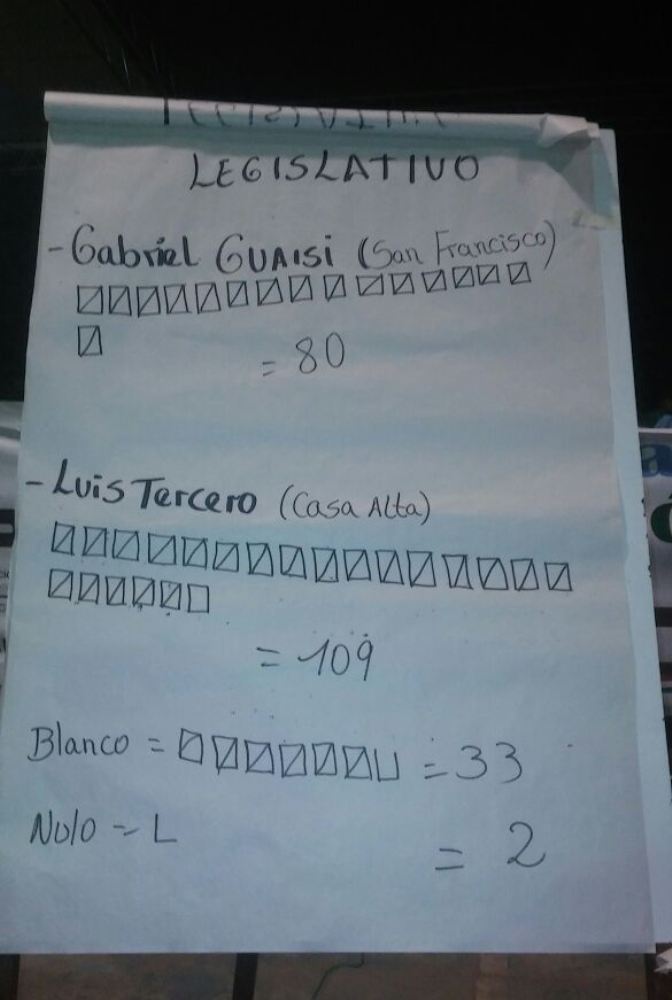 LEGISLATIVO
- Gabriel GUAISI (San Francisco)
= 80
- Luis Tercero (Casa Alta)
= 109
Blanco = = 33
Nulo = = 2